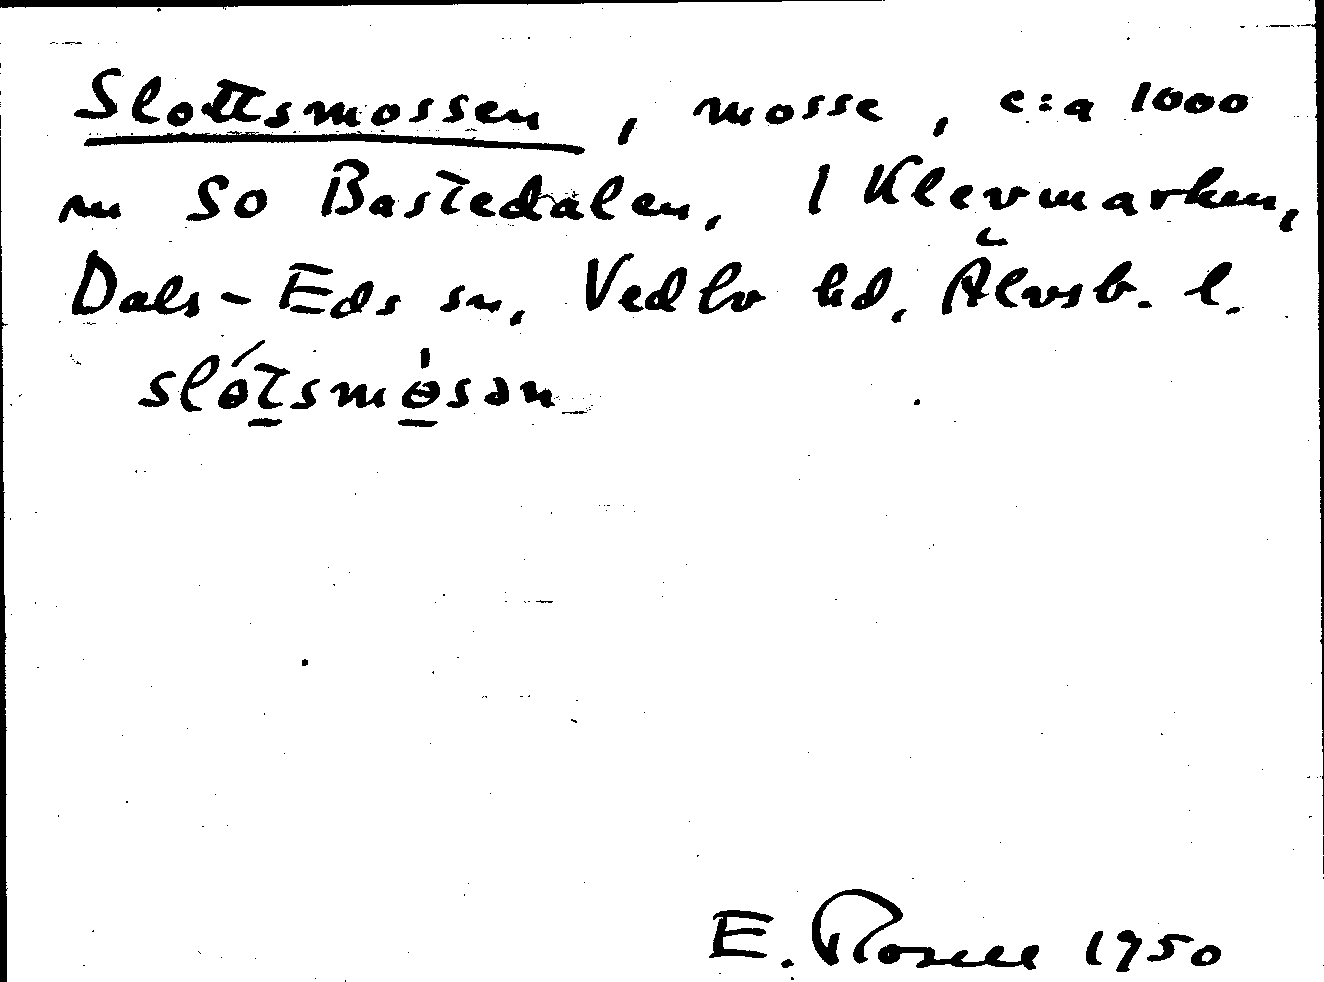 Slottsmossen, mosse, c:a 1000
m SO Bastedalen, 1 Klevmarken,
Dals-Eds sn, Vedbo hd, Älvsb. l.
slótsmɵ̀sən
E. Rosell 1950